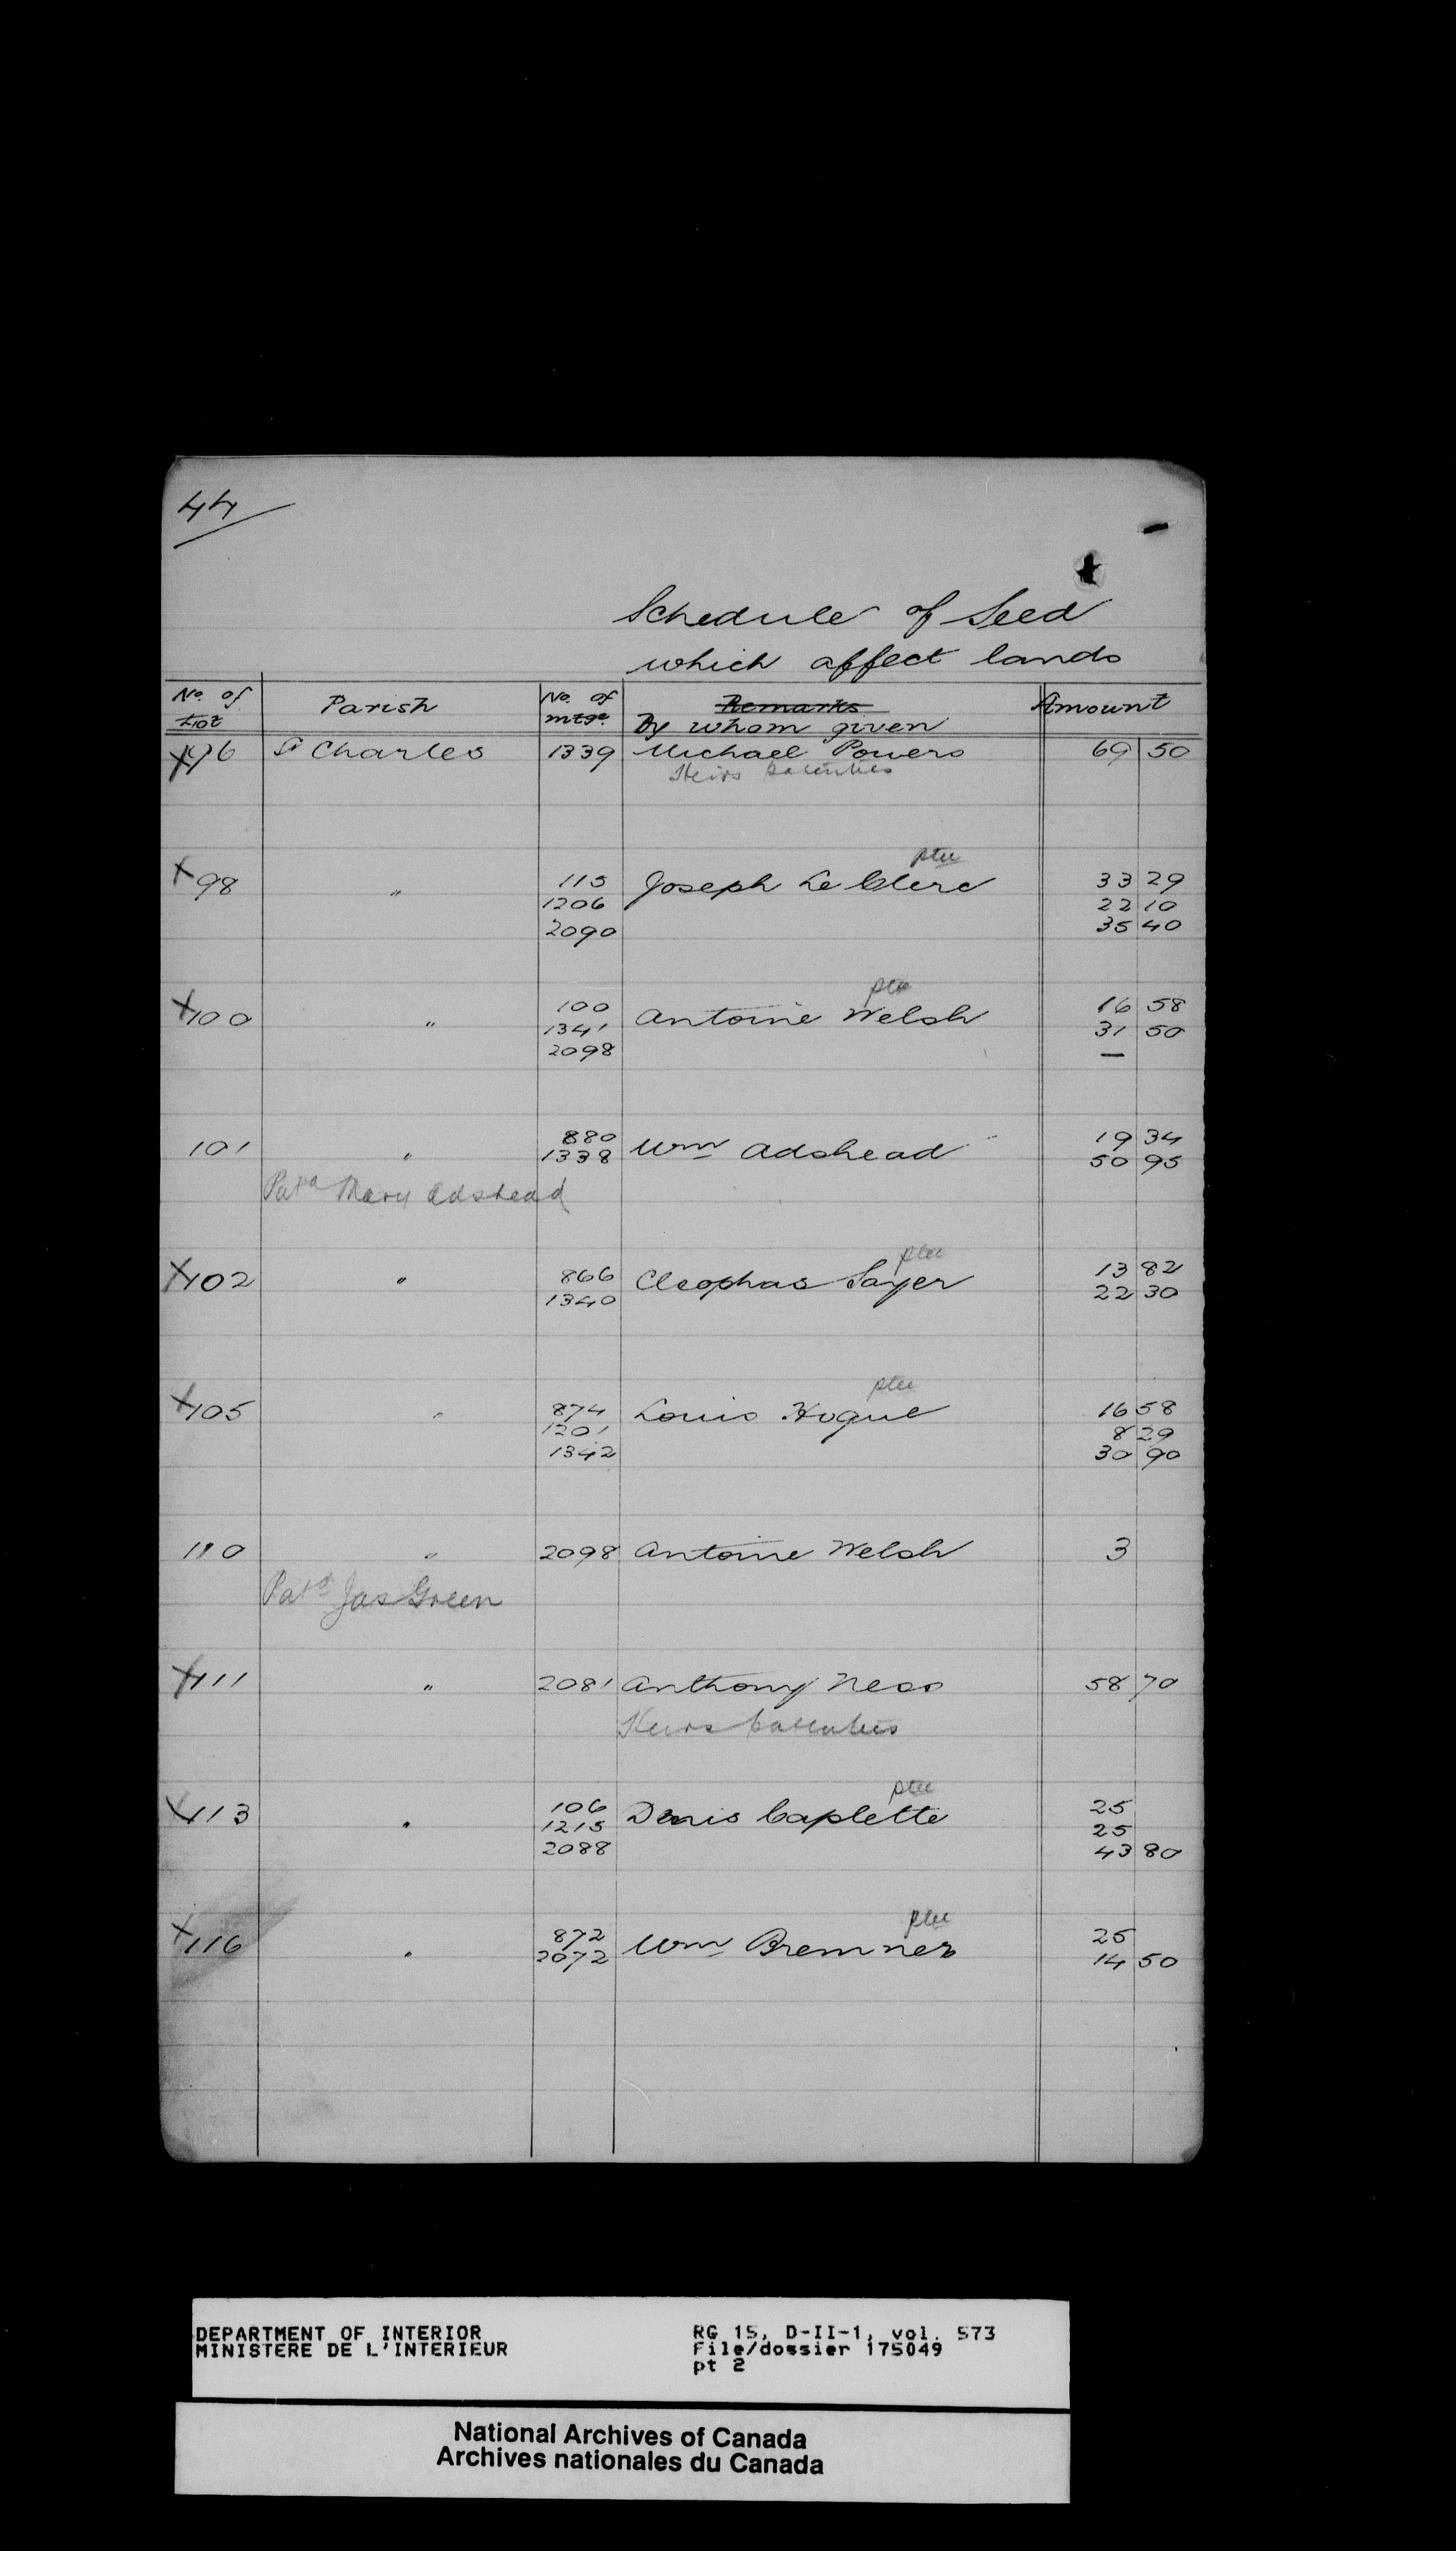 44
Schedule of Seed
which affect lands
No. of Lot Parish No. of mtge. Remarks By whom given Amount
X 96 St Charles 1339 Michael Powers 69 50
Heirs patentees
X 98 " 115 Joseph Le Clerc ptee 33 29
1206 22 10
2090 35 40
X 100 " 100 Antoine Welsh ptee 16 58
1341 31 50
2098 —
101 " 880 Wm Adshead 19 34
1338 50 95
Patd Mary Adshead
X 102 " 866 Cleophas Sayer ptee 13 82
1340 22 30
X 105 " 874 Louis Hogue ptee 16 58
1201 8 29
1342 30 90
110 " 2098 Antoine Welsh 3
Patd Jas Green
X 111 " 2081 Anthony Ness 58 70
Heirs patentees
X 113 " 106 Denis Caplette ptee 25
1215 25
2088 43 80
X 116 " 872 Wm Bremner ptee 25
2072 14 50
DEPARTMENT OF INTERIOR
MINISTERE DE L'INTERIEUR
RG 15, D-II-1, vol. 573
File/dossier 175049
pt 2
National Archives of Canada
Archives nationales du Canada